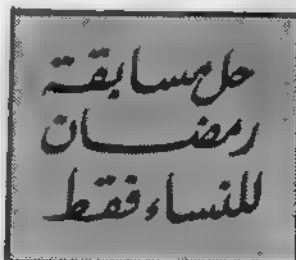 حل مسابقة
رمضان
للنساء فقط